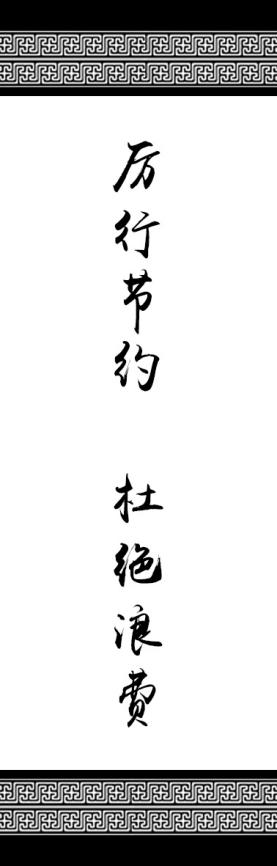 厉行节约 杜绝浪费